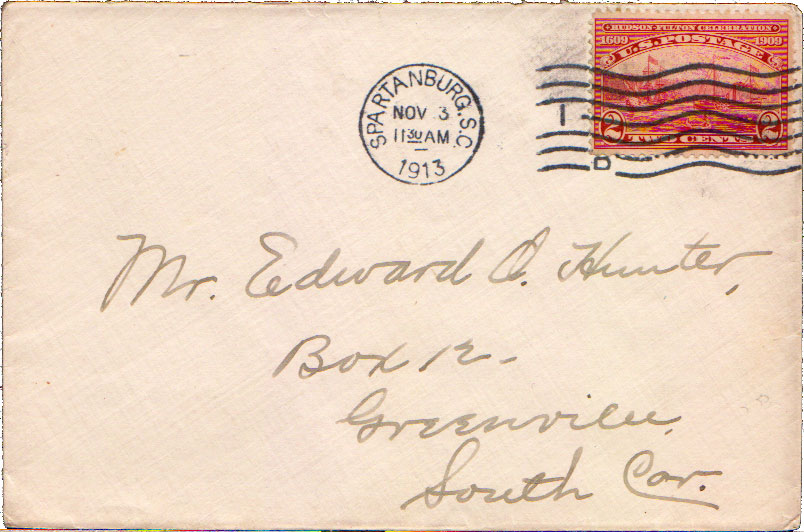 HUDSON-FULTON CELEBRATION
1609 1909
U.S. POSTAGE
2 TWO CENTS 2
SPARTANBURG. S.C.
NOV 3
1130 AM
1913
Mr. Edward O. Hunter,
Box 12-
Greenville,
South Car.